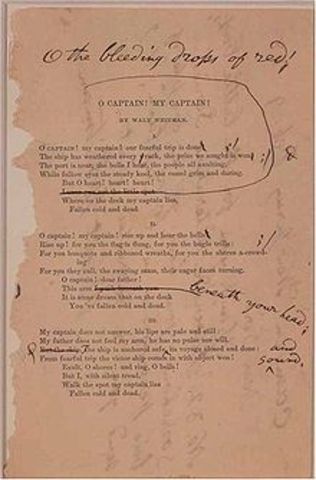 O the bleeding drops of red!
O CAPTAIN! MY CAPTAIN!
BY WALT WHITMAN.
I.
O CAPTAIN! my captain! our fearful trip is done
The ship has weathered every rack, the prize we sought is won
The port is near, the bells I hear, the people all exulting,
While follow eyes the steady keel, the vessel grim and daring.
But O heart! heart! heart!
Leave you not the little spot
Where on the deck my captain lies,
Fallen cold and dead
II.
O captain! my captain! rise up and hear the bells
Rise up! for you the flag is flung, for you the bugle trills:
For you bouquets and ribboned wreaths, for you the shores a-crowd-
ing:
For you they call, the swaying mass, their eager faces turning.
O captain! dear father!
This arm beneath your head;
It is some dream that on the deck
You've fallen cold and dead.
III.
My captain does not answer, his lips are pale and still:
My father does not feel my arm, he has no pulse nor will.
The ship is anchored safe, its voyage closed and done: and sound,
From fearful trip the victor ship comes in with object won!
Exult, O shores! and ring, O bells!
But I, with silent tread,
Walk the spot my captain lies
Fallen cold and dead.